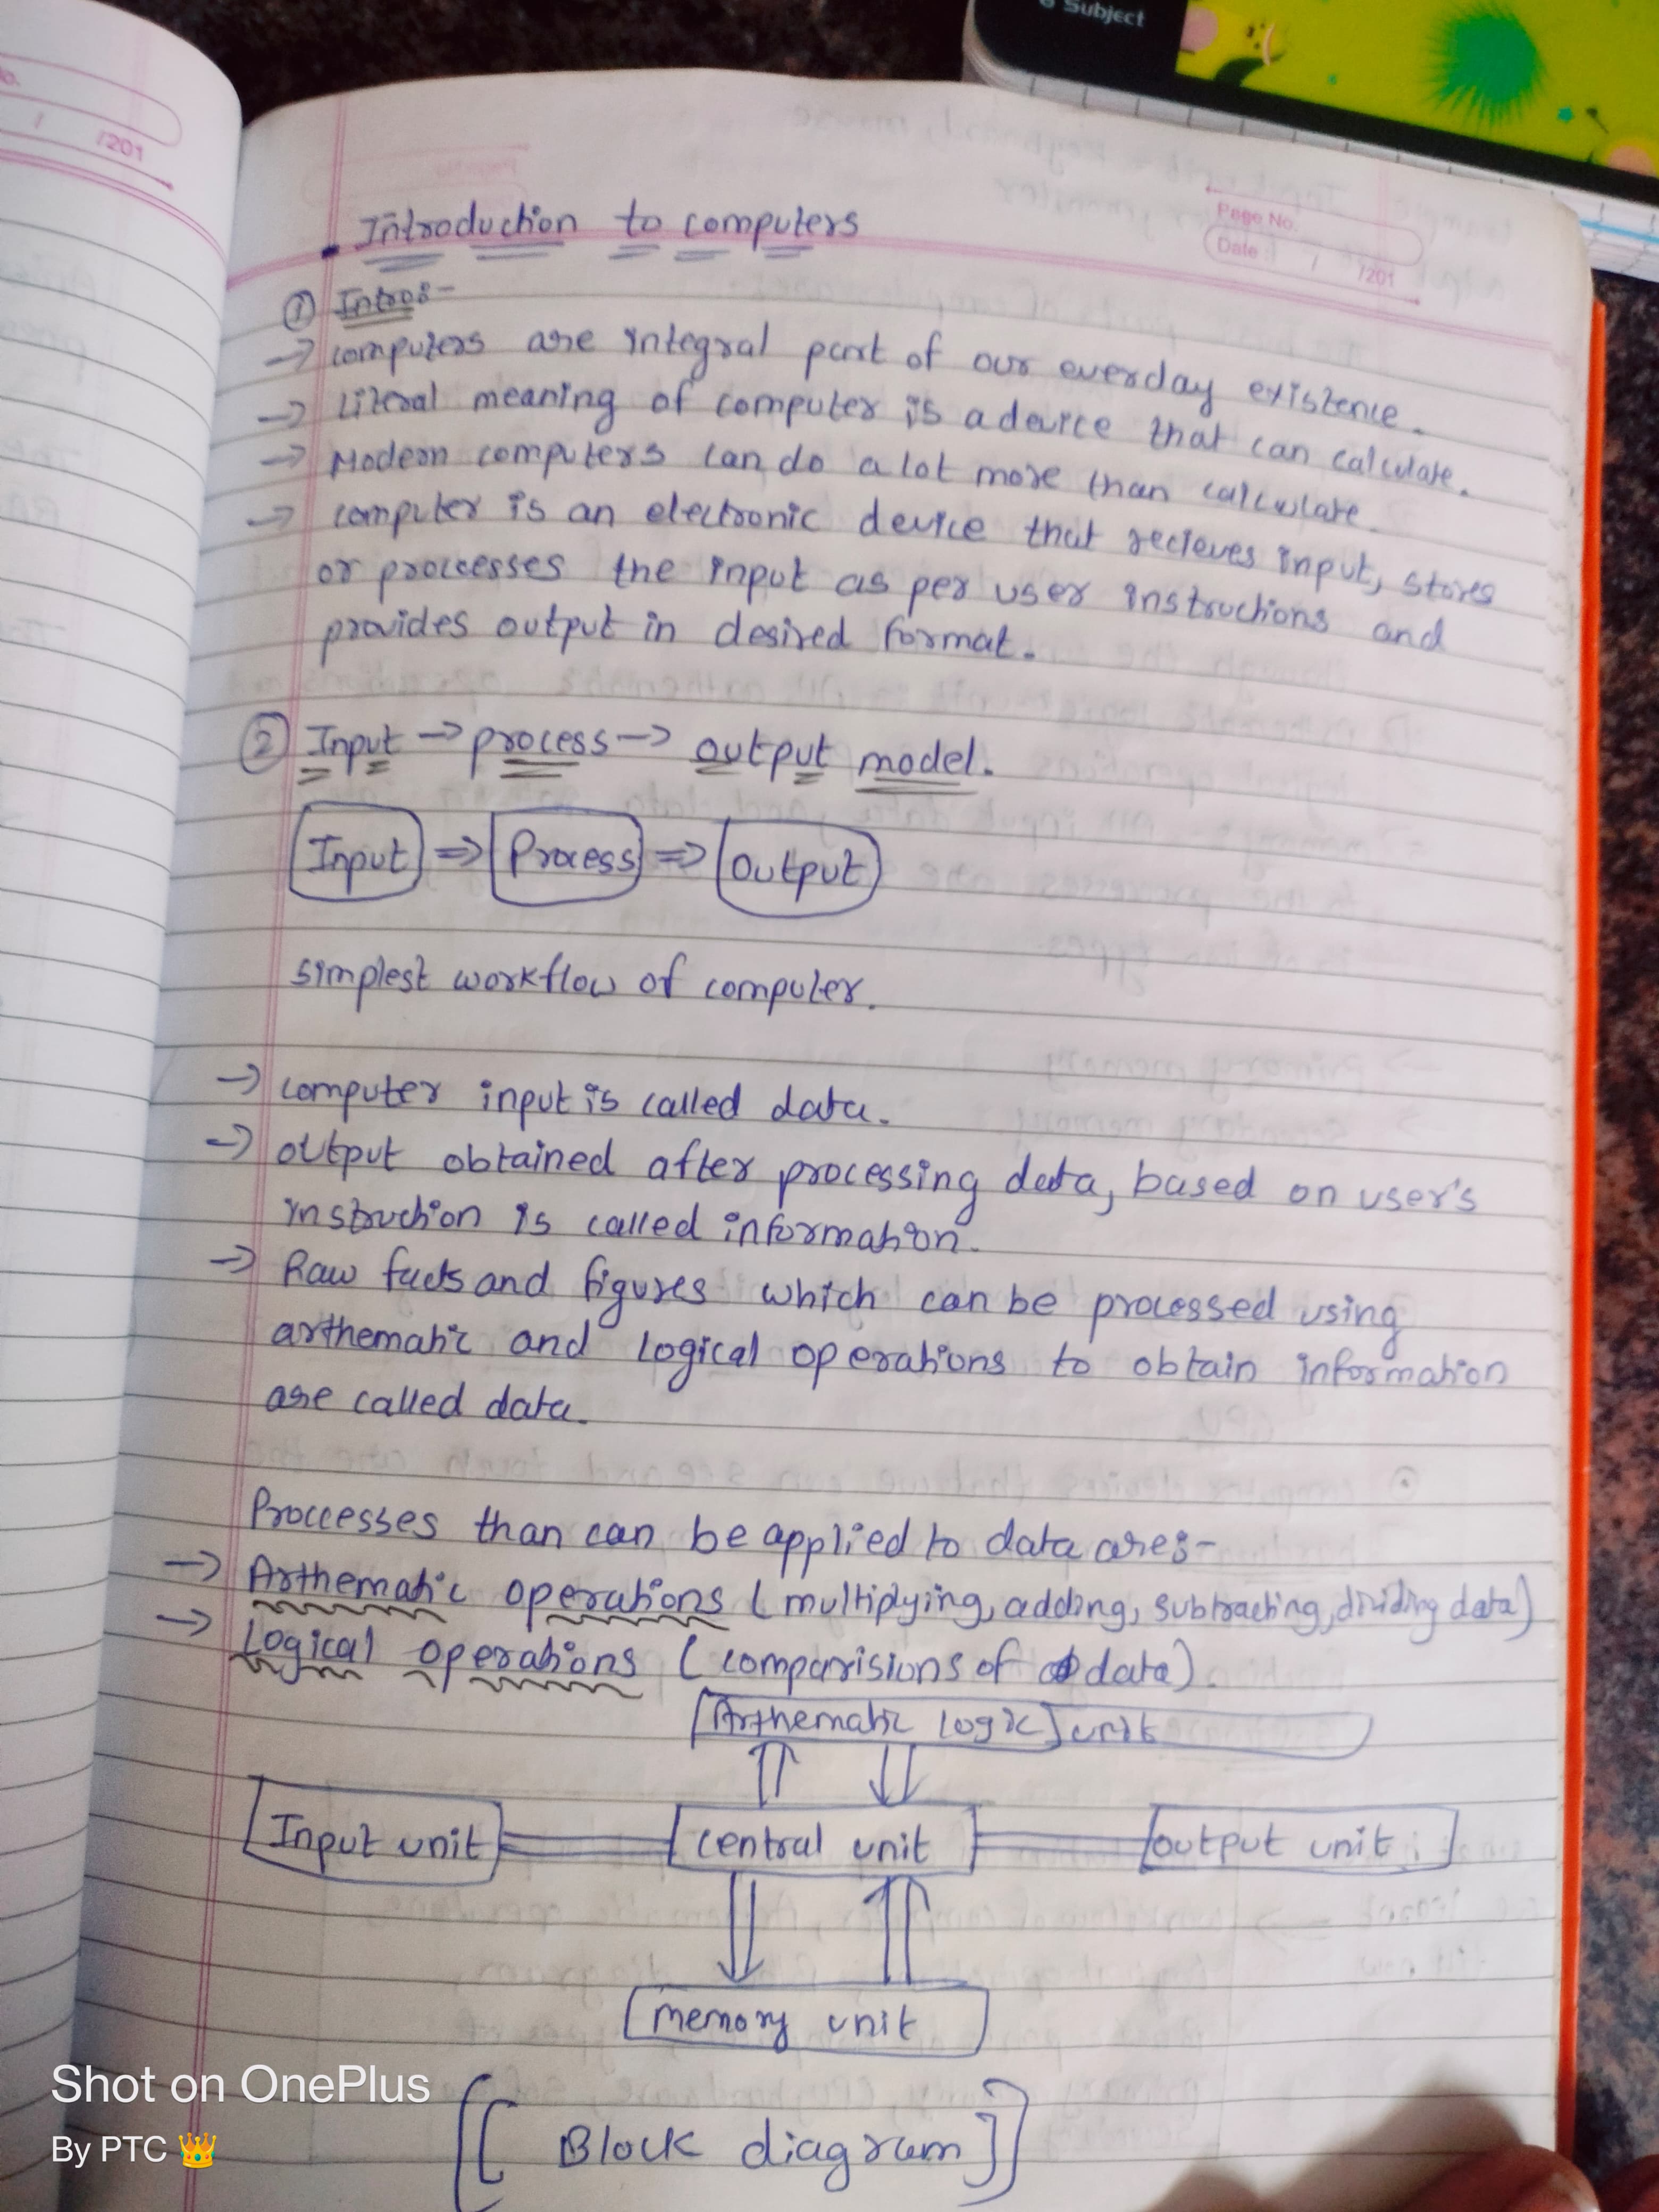 8 Subject
/201
Page No.
Date / /201
Introduction to computers
① Intro:-
→ computers are integral part of our everday existence.
→ Literal meaning of computer is a device that can calculate.
→ Modern computers can do a lot more than calculate.
→ computer is an electronic device that recieves input, stores
or proccesses the input as per user instructions and
provides output in desired format.
② Input → process → output model.
Input ⇒ Process ⇒ Output
simplest workflow of computer.
→ computer input is called data.
→ output obtained after processing data, based on user's
instruction is called information.
→ Raw facts and figures which can be processed using
arthematic and logical operations to obtain information
are called data.
Proccesses than can be applied to data are:-
→ Arthematic operations (multiplying, adding, subtracting, dividing data)
→ Logical operations (comparisions of data).
Arthematic logic unit
Input unit central unit output unit
memory unit
[[ Block diagram ]]
Shot on OnePlus
By PTC 👑